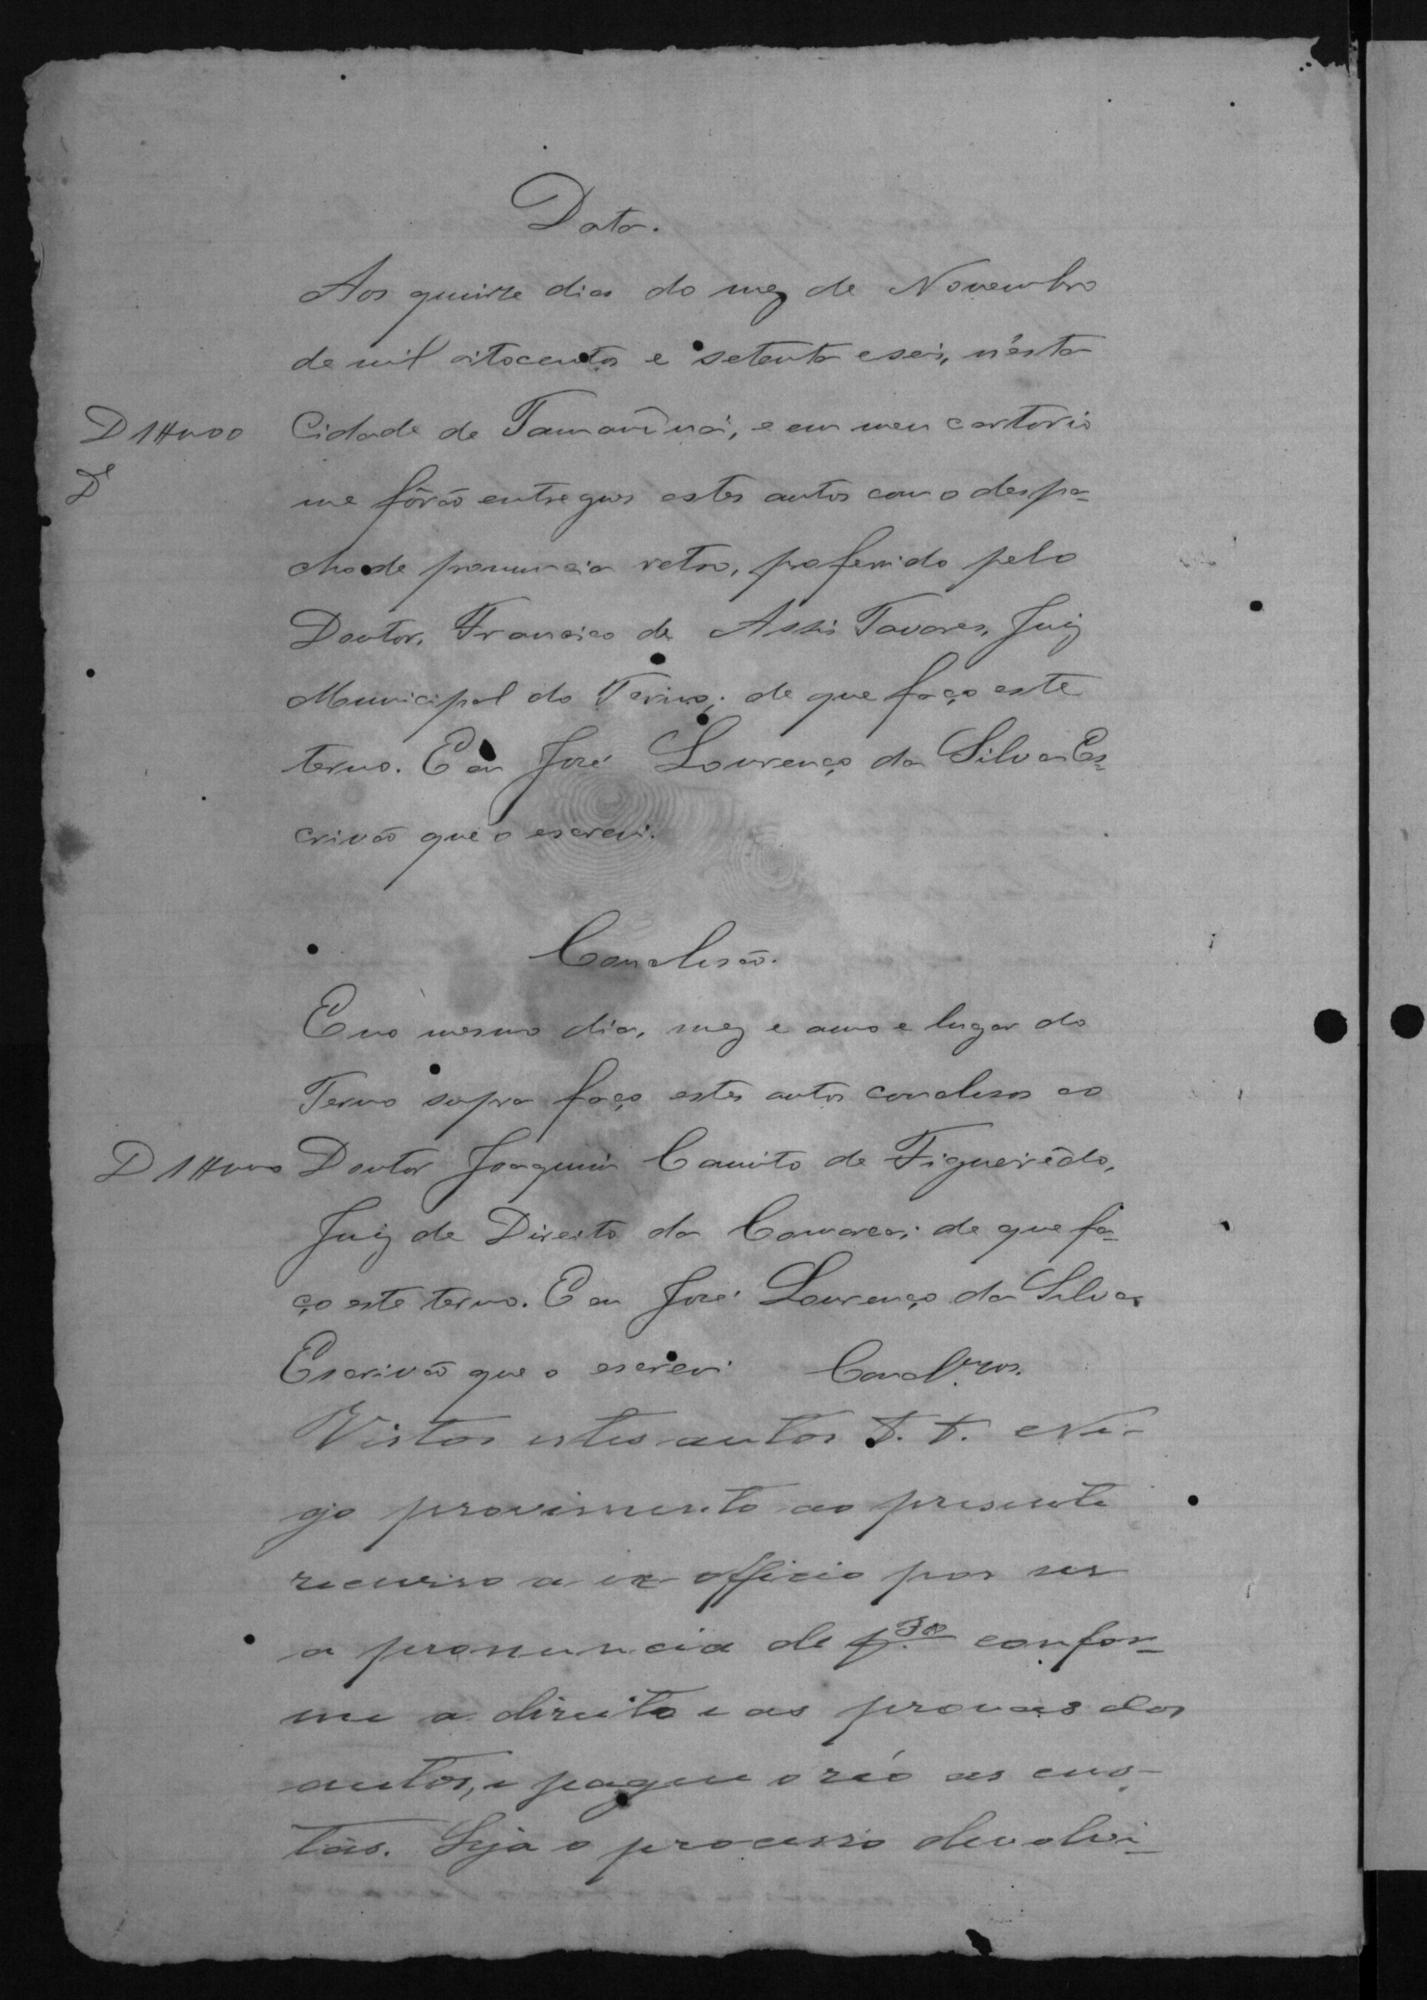 Data.
Aos quinze dias do mez de Novembro
de mil oitocentos e setenta e seis, n'esta
Cidade de Jamarînoá, e em meu cartorio
me fôrão entregues estes autos com o despa-
cho de pronuncia retro, proferido pelo
Doutor, Francisco de Assis Tavares, Juiz
Municipal do Termo; de que faço este
termo. E eu José Lourenço da Silva Es-
crivão que o escrevi.
Conclusão.
E no mesmo dia, mez e anno e lugar do
Termo supra faço estes autos conclusos ao
Doutor Joaquim Camito de Figueirêdo,
Juiz de Direito da Comarca; de que fa-
ço este termo. E eu José Lourenço da Silva,
Escrivão que o escrevi
Vistos estes autos &. &. Ne-
go provimento ao presente
recurso a ex officio por ser
a pronuncia de confor-
me a direito e as provas dos
autos, e pague o réo as cus-
tas. Seja o processo devolvi-